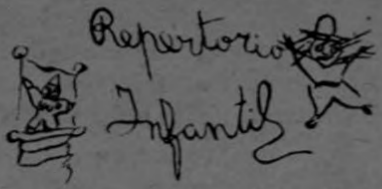 Repertorio
Infantil